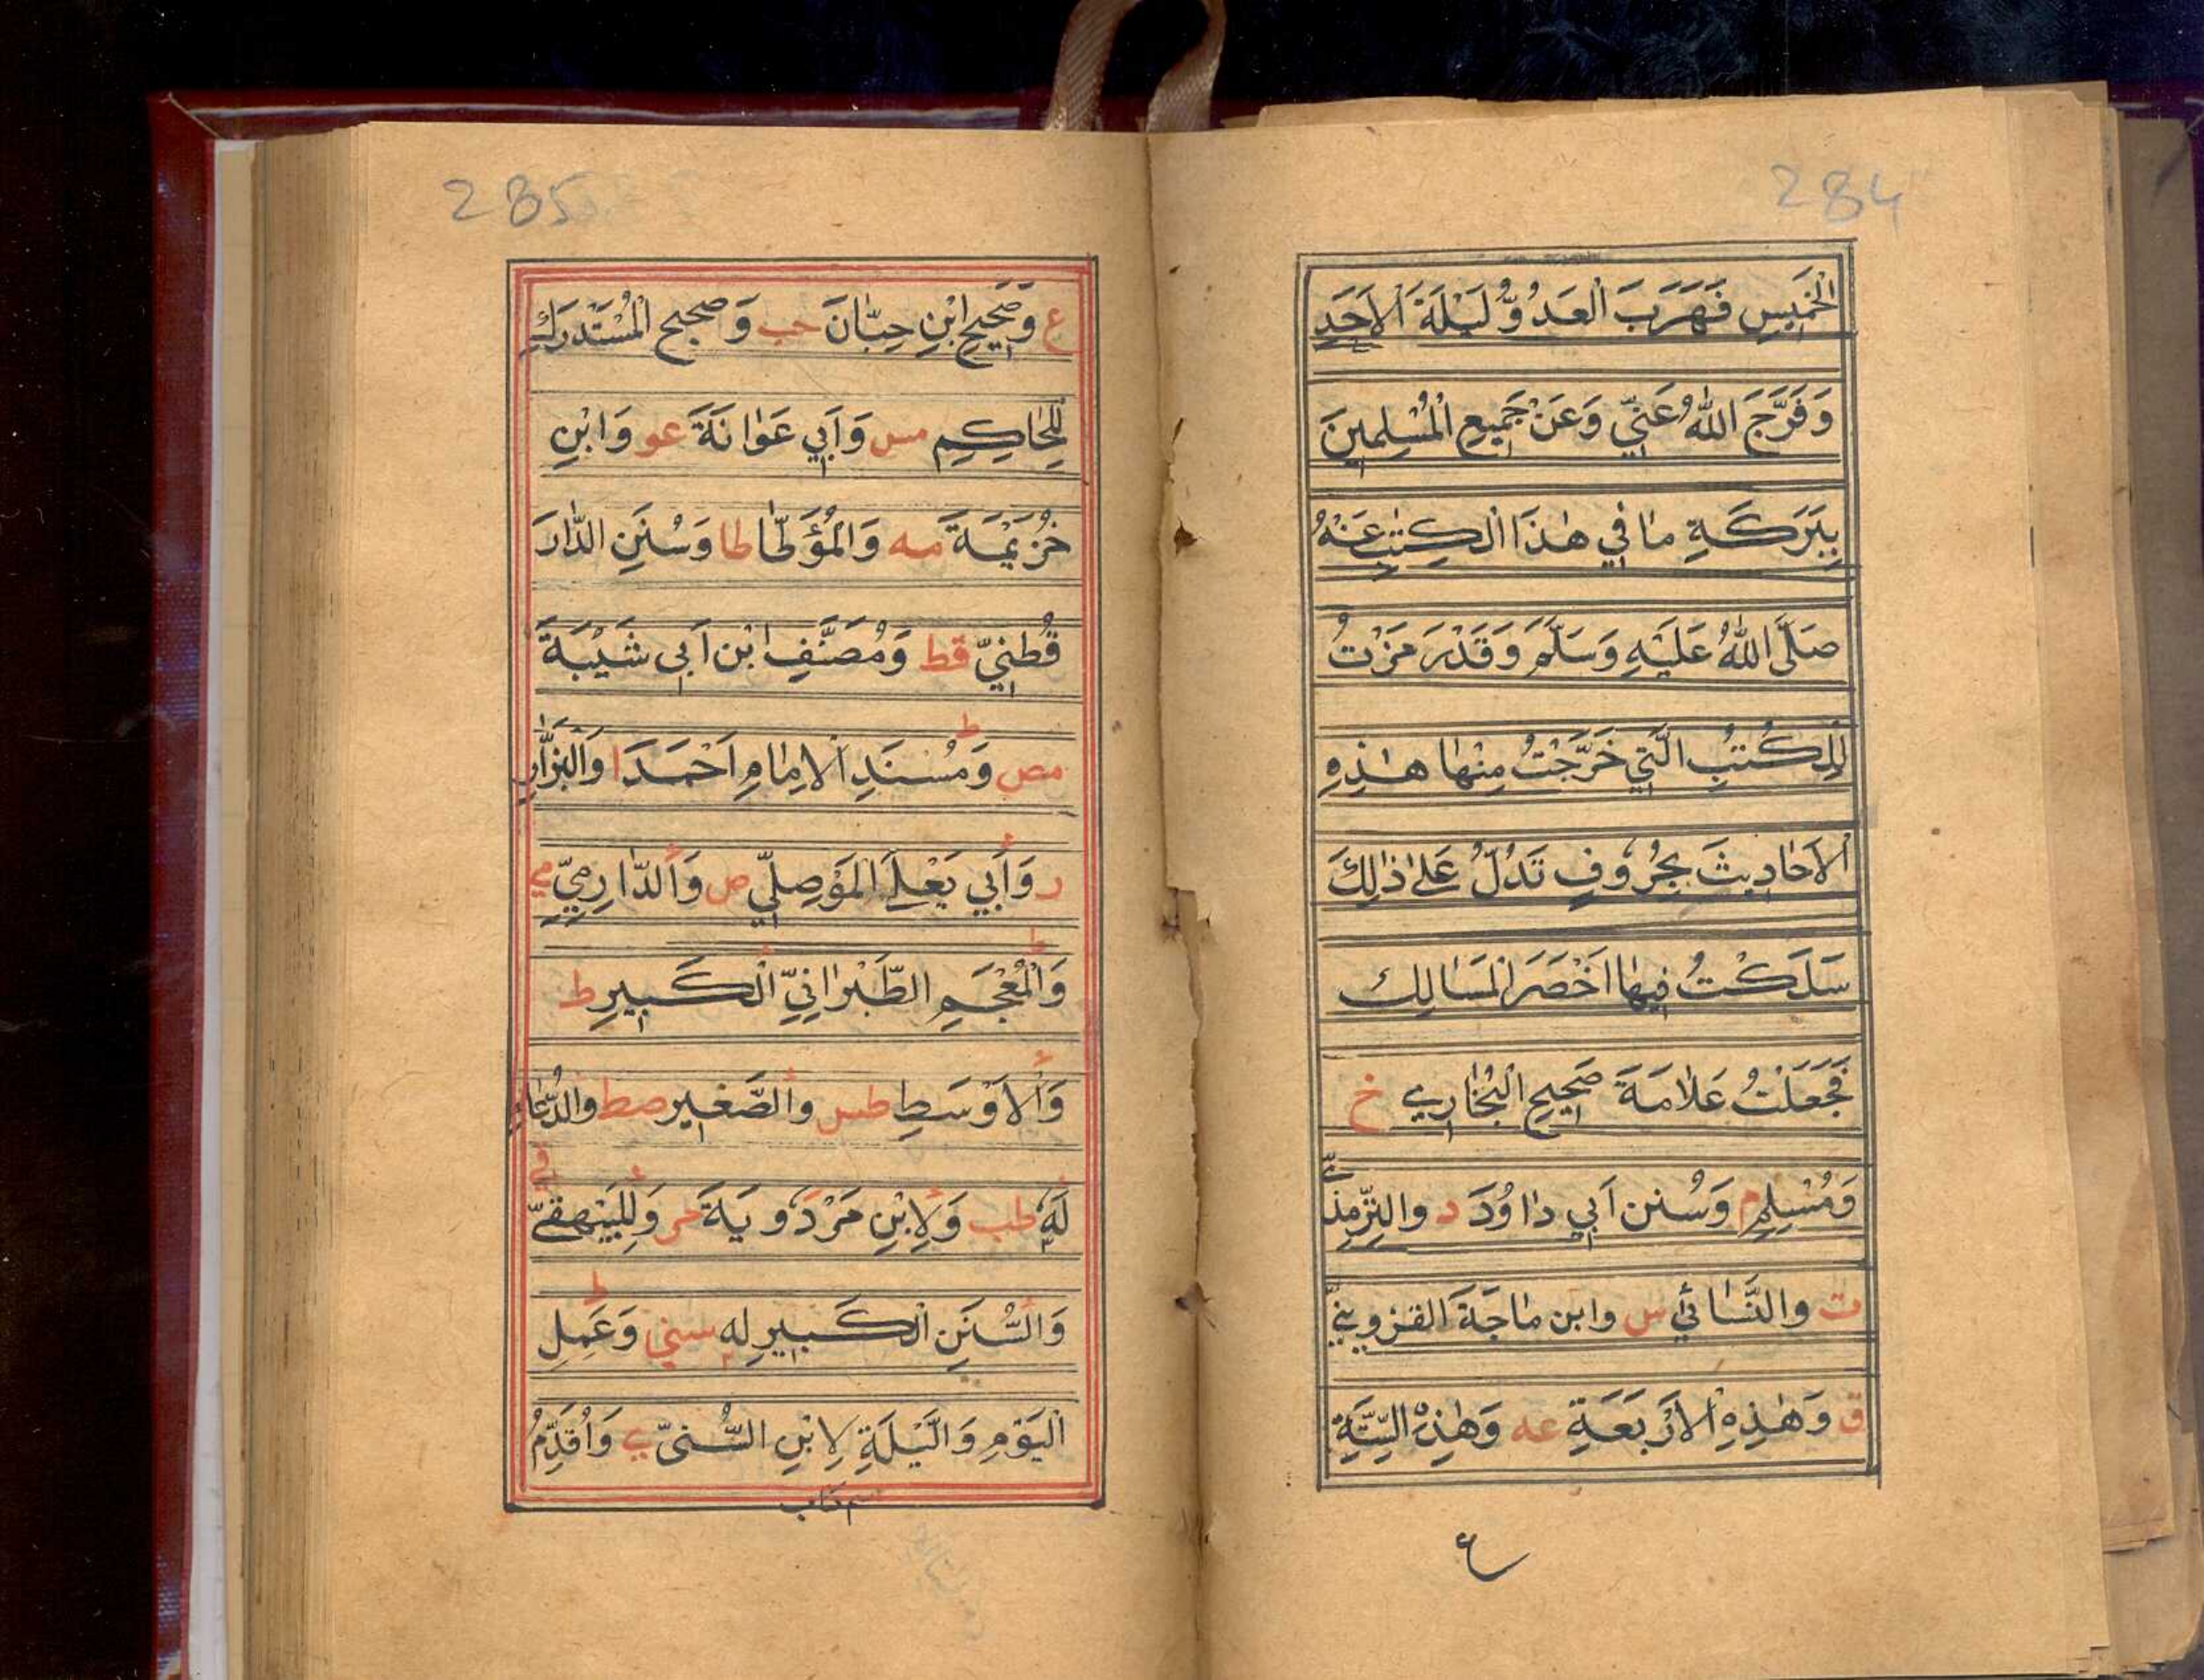 284
الْخَمِيسِ فَهَرَبَ الْعَدُوُّ لَيْلَةَ الْاَحَدِ
وَفَرَّجَ اللّٰهُ عَنِّي وَعَنْ جَمِيعِ الْمُسْلِمِينَ
بِبَرَكَةِ مَا فِي هٰذَا الْكِتٰبِ عَنْهُ
صَلَّى اللّٰهُ عَلَيْهِ وَسَلَّمَ وَقَدْ رَمَزْتُ
لِلْكُتُبِ الَّتِي خَرَّجْتُ مِنْهَا هٰذِهِ
الْاَحَادِيثَ بِحُرُوفٍ تَدُلُّ عَلٰى ذٰلِكَ
سَلَكْتُ فِيهَا اَخْصَرَ الْمَسَالِك
فَجَعَلْتُ عَلَامَةَ صَحِيحِ الْبُخَارِي خ
وَمُسْلِمٍ م وَسُنن اَبِي دَاوُدَ د والتِّرْمِذِيِّ
ت والنَّسَائِي س وابن مَاجَةَ القزوينيِّ
ق وَهٰذِهِ الْاَرْبَعَةِ عه وَهٰذِهِ السِّتَّةِ
ع
285
ع وَصَحِيحِ ابْنِ حِبَّانَ حب وَصحيح الْمُسْتَدْرَكِ
لِلْحَاكِمِ مس وَاَبِي عَوَانَةَ عو وَابْنِ
خُزَيْمَةَ مه وَالْمُؤَطَّا طا وَسُنَنِ الدَّارَ
قُطْنِيِّ قط وَمُصَنَّفِ ابْن اَبِي شَيْبَةَ
مص وَمُسْنَدِ الْاِمَامِ اَحْمَدَ ا وَالْبَزَّارِ
ر وَاَبِي يَعْلَى الْمَوْصِلِيِّ ص وَالدَّارِمِيِّ مي
وَالْمُعْجَمِ الطَّبْرَانِيِّ الْكَبِيرِ ط
وَالْاَوْسَطِ طس والصَّغِير صط والدُّعَاءِ
لَهُ طب وَلِابْنِ مَرْدَوِيَةَ مر وَلِلْبَيْهَقِيِّ قي
وَالسُّنَنِ الْكَبِيرِ له سني وَعَمَلِ
الْيَوْمِ وَاللَّيْلَةِ لِابْنِ السُّنِّيِّ ي وَاُقَدِّمُ